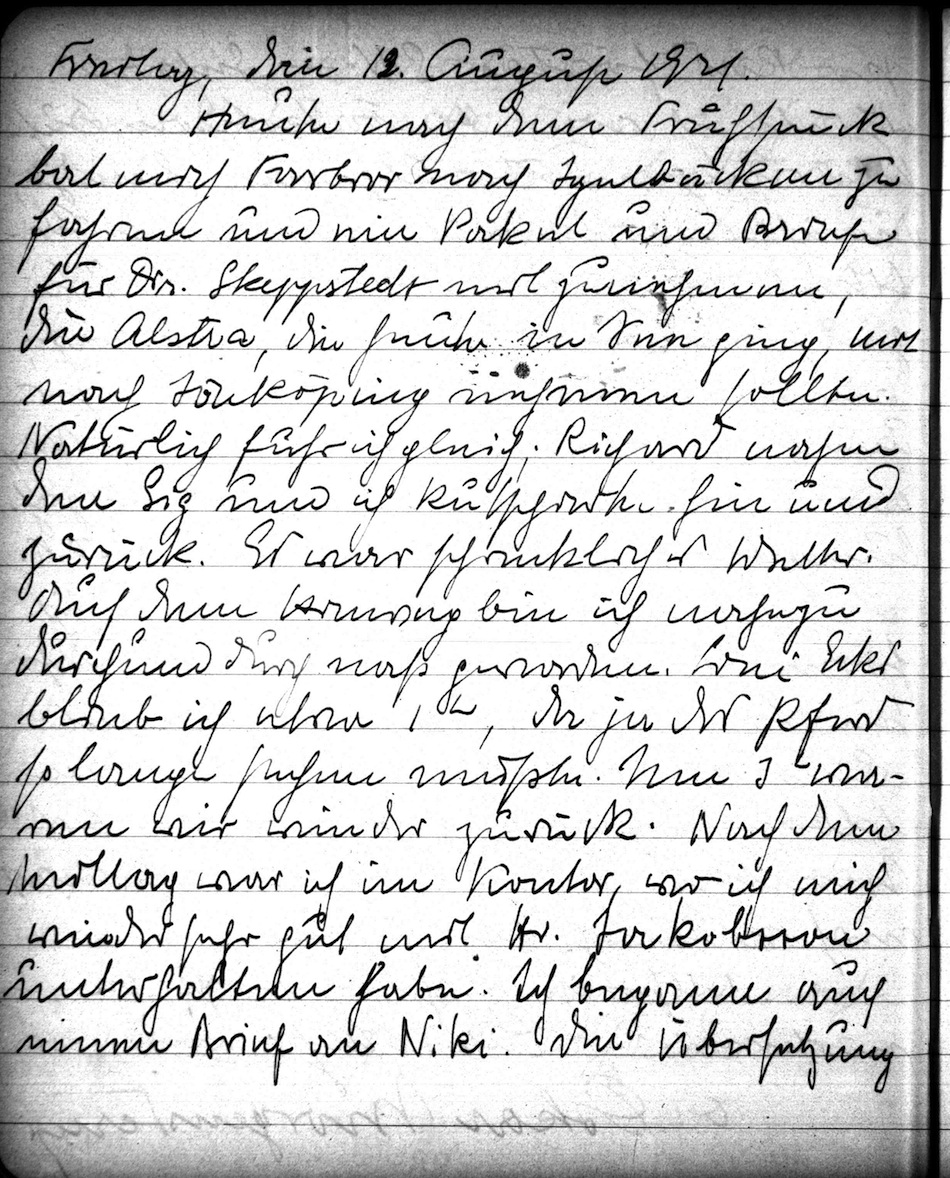 Freitag, den 12. August 1921.
Heute nach dem Frühstück
bat mich Farbror nach Igelbäcken zu
fahren und ein Paket und Briefe
für Dir. Skeppstedt mit zunehmen,
die Alstra, die heute in See ging, mit
nach Jönköping nehmen sollte.
Natürlich fuhr ich gleich; Richard nahm
den Sitz und ich kutschierte hin und
zurück. Es war schreckliches Wetter.
Auf dem Herweg bin ich nahezu
durchund durch naß geworden. bei
blieb ich etwa 1 h, da ja das Pferd
so lange stehen mußte. Um 3 wa-
ren wir wieder zurück. Nach dem
Mittag war ich im Kontor, wo ich mich
wieder sehr gut mit Hr. Jakobsson
unterhalten habe. Ich begann auch
einen Brief an Niki. Die Übersetzung